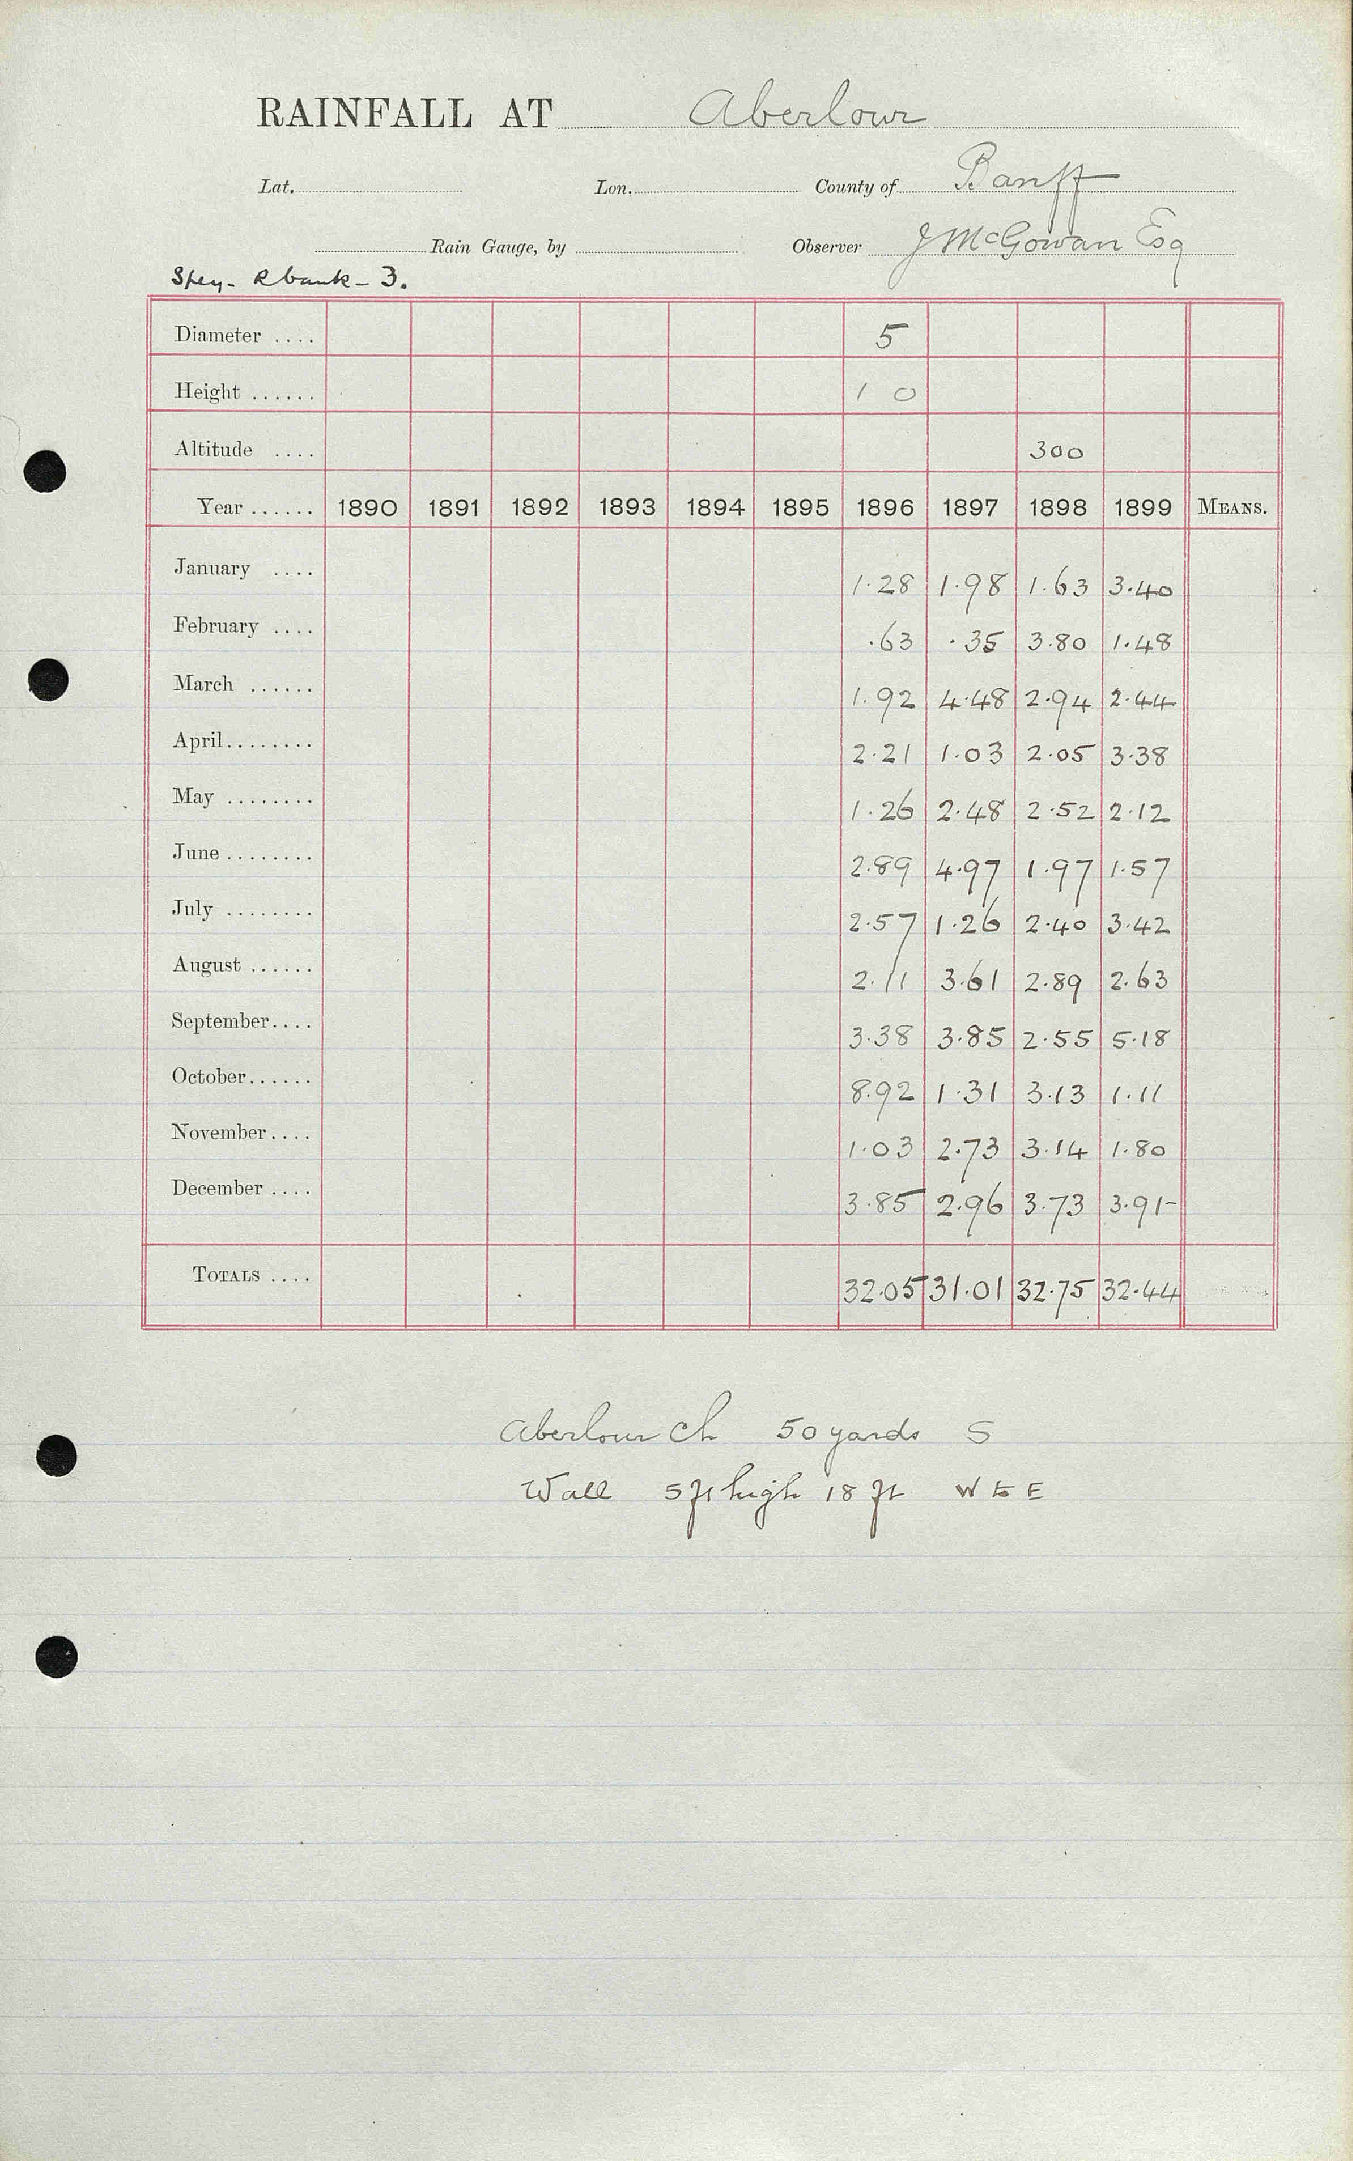 RAINFALL AT Aberlour
Lat. Lon. County of Banff
Rain Gauge, by Observer J McGowan Esq
Spey - R bank - 3.
Diameter .... 5
Height ...... 1 0
Altitude .... 300
Year ...... 1890 1891 1892 1893 1894 1895 1896 1897 1898 1899 MEANS.
January .... 1.28 1.98 1.63 3.40
February .... .63 .35 3.80 1.48
March ...... 1.92 4.48 2.94 2.44
April........ 2.21 1.03 2.05 3.38
May ........ 1.26 2.48 2.52 2.12
June ........ 2.89 4.97 1.97 1.57
July ........ 2.57 1.26 2.40 3.42
August ...... 2.11 3.61 2.89 2.63
September.... 3.38 3.85 2.55 5.18
October...... 8.92 1.31 3.13 1.11
November.... 1.03 2.73 3.14 1.80
December .... 3.85 2.96 3.73 3.91
TOTALS .... 32.05 31.01 32.75 32.44
Aberlour Ch 50 yards S
Wall 5 ft high 18 ft W & E